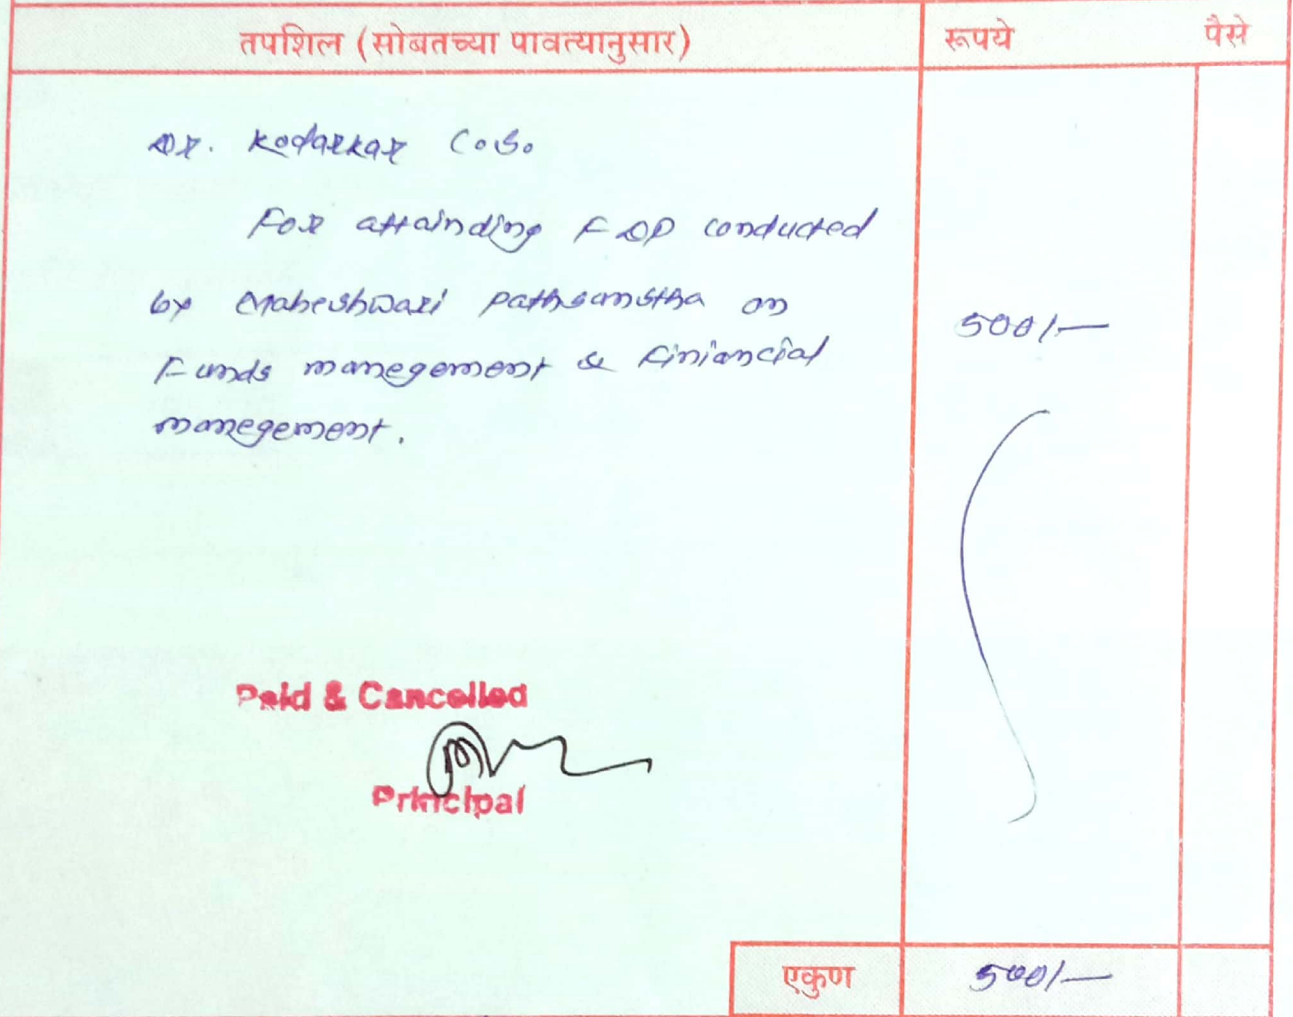 तपशिल (सोबतच्या पावत्यानुसार) रूपये पैसे
Dr. Kodarkar C.S.
For attainding FDP conducted
by Maheshwari pathsanstha on
500/-
Funds manegement & Finiancial
manegement.
Paid & Cancelled
Principal
एकुण 500/-